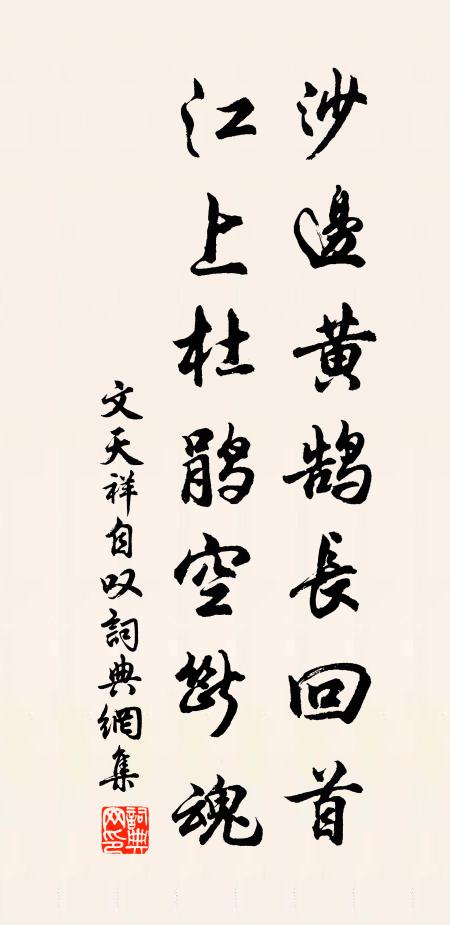 沙邊黄鹄長回首
江上杜鹃空斷魂
文天祥自叹詞典網集
詞典網印